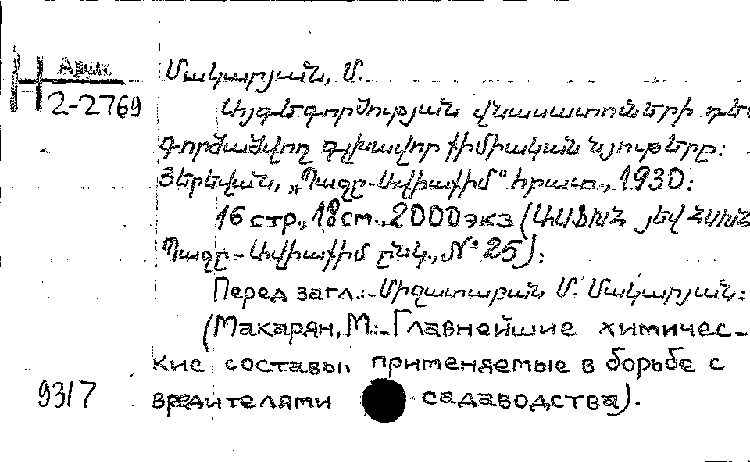 Н Арм.
2-2769
Մակարյան, Մ.
Այգեգործության վնասատուների դեմ
գործածվող գլխավոր քիմիական նյութերը:
Յերեվան, „Պազը-Ավիաքիմ“ հրատ., 1930:
16 стр., 18 см., 2000 экз (ԱԱՖԽՀ յեվ ՀՍԽՀ
Պազը-Ավիաքիմ ընկ., № 25):
Перед загл.: Միջատաբան Մ. Մակարյան:
(Макарян, М.- Главнейшие химичес-
кие составы применяемые в борьбе с
вредителями садаводства).
93/7